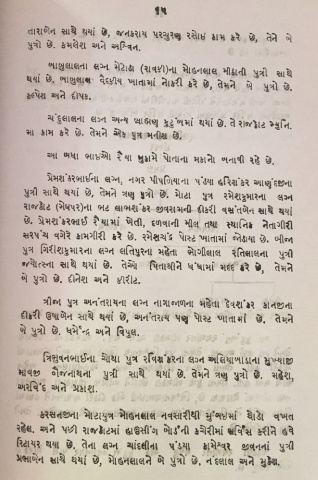 ૬૫
તારાબેન સાથે થયાં છે, જનકરાય પરચુરણ રસોઇ કામ કરે છે, તેને બે
પુત્રો છે. કમલેશ અને અશ્વિન.
ભાનુલાલના લગ્ન મેટોડા (રાવકી)ના મોહનલાલ મીઠાની પુત્રી સાથે
થયાં છે. ભાનુલાલ વૈદકીય ખાતામાં નોકરી કરે છે, તેમને બે પુત્રો છે.
કલ્પેશ અને દીપક.
ચંદુલાલના લગ્ન અન્ય બ્રાહ્મણ કુટુંબમાં થયાં છે. તે રાજકોટ મ્યુનિ.
મા કામ કરે છે. તેમને એક પુત્ર મનીષ છે.
આ બધા ભાઇઓ રૈયા મુકામે પોતાના મકાનો બનાવી રહે છે.
પ્રેમશંકરભાઇના લગ્ન, નગર પીપળિયાના પંડયા હરિશંકર આણંદજીના
પુત્રી સાથે થયાં છે, તેમને ત્રણ પુત્રો છે. મોટા પુત્ર રમેશકુમારના લગ્ન
રાજકોટ (મેઘપર)ના ભટ લાભશંકર જીવરામની દીકરી વસંતબેન સાથે થયાં
છે. પ્રેમશંકરભાઇ રૈયામાં ખેતી, દળવાની મીલ તથા સ્થાનિક નેતાગીરી
સરપંચ વગેરે કામગીરી કરે છે. રમેશચંદ્ર પોસ્ટ ખાતામાં જોડાયા છે. બીજા
પુત્ર ગિરીશકુમારના લગ્ન લતિપુરના મહેતા ભોગીલાલ રતિલાલના પુત્રી
જ્યોત્સના સાથે થયાં છે. તેઓ પિતાશ્રીને ધંધામાં મદદ કરે છે, તેમને
બે પુત્રો છે, દીનેશ અને કીરીટ.
ત્રીજા પુત્ર અનંતરાયના લગ્ન નાગાજળના મહેતા દેવશંકર કાનજીના
દીકરી ઉષાબેન સાથે થયાં છે, અનંતરાય પણ પોસ્ટ ખાતામાં છે. તેમને
બે પુત્રો છે. ધર્મેન્દ્ર અને વિપુલ.
ત્રિભુવનભાઇના ચોથા પુત્ર રવિશંકરના લગ્ન અલિયાબાડાના મુખ્યાજી
માવજી વૈજનાથના પુત્રી સાથે થયાં છે. તેમને ત્રણ પુત્રો છે. મહેશ,
અરવિંદ અને પ્રકાશ.
કરસનજીના મોટાપુત્ર મોહનલાલ નવસારીથી મુંબઇમાં થોડો વખત
રહેલ, અને પછી રાજકોટમાં હાઉસીંગ બોર્ડની કચેરીમાં સર્વિસ કરીને હવે
રિટાયર થયા છે. તેના લગ્ન ચાંદલીના પંડયા કામેશ્વર જીવનનાં પુત્રી
પ્રભાબેન સાથે થયાં છે, મોહનલાલને બે પુત્રો છે. નંદલાલ અને મુકેશ.